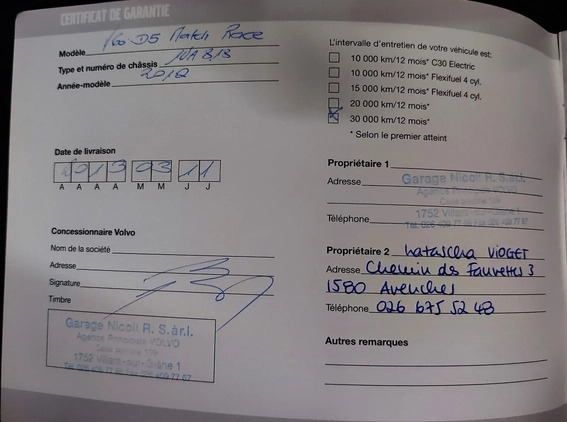 CERTIFICAT DE GARANTIE
Modèle V60 D5 Match Race
Type et numéro de châssis
Année-modèle 2012
Date de livraison
2013 03 11
A A A A M M J J
Concessionnaire Volvo
Nom de la société
Adresse
Signature
Timbre
Garage Nicoli R. S.àr.l.
Agence Principale VOLVO
1752 Villars-sur-Glâne 1
L'intervalle d'entretien de votre véhicule est:
10 000 km/12 mois* C30 Electric
10 000 km/12 mois* Flexifuel 4 cyl.
15 000 km/12 mois* Flexifuel 4 cyl.
20 000 km/12 mois*
30 000 km/12 mois*
* Selon le premier atteint
Propriétaire 1
Garage Nicoli R. S.àr.l.
Adresse
Agence Principale VOLVO
1752 Villars-sur-Glâne 1
Téléphone
Propriétaire 2 Natascha VIOGET
Adresse Chemin des Fauvettes 3
1580 Avenches
Téléphone 026 675 52 48
Autres remarques